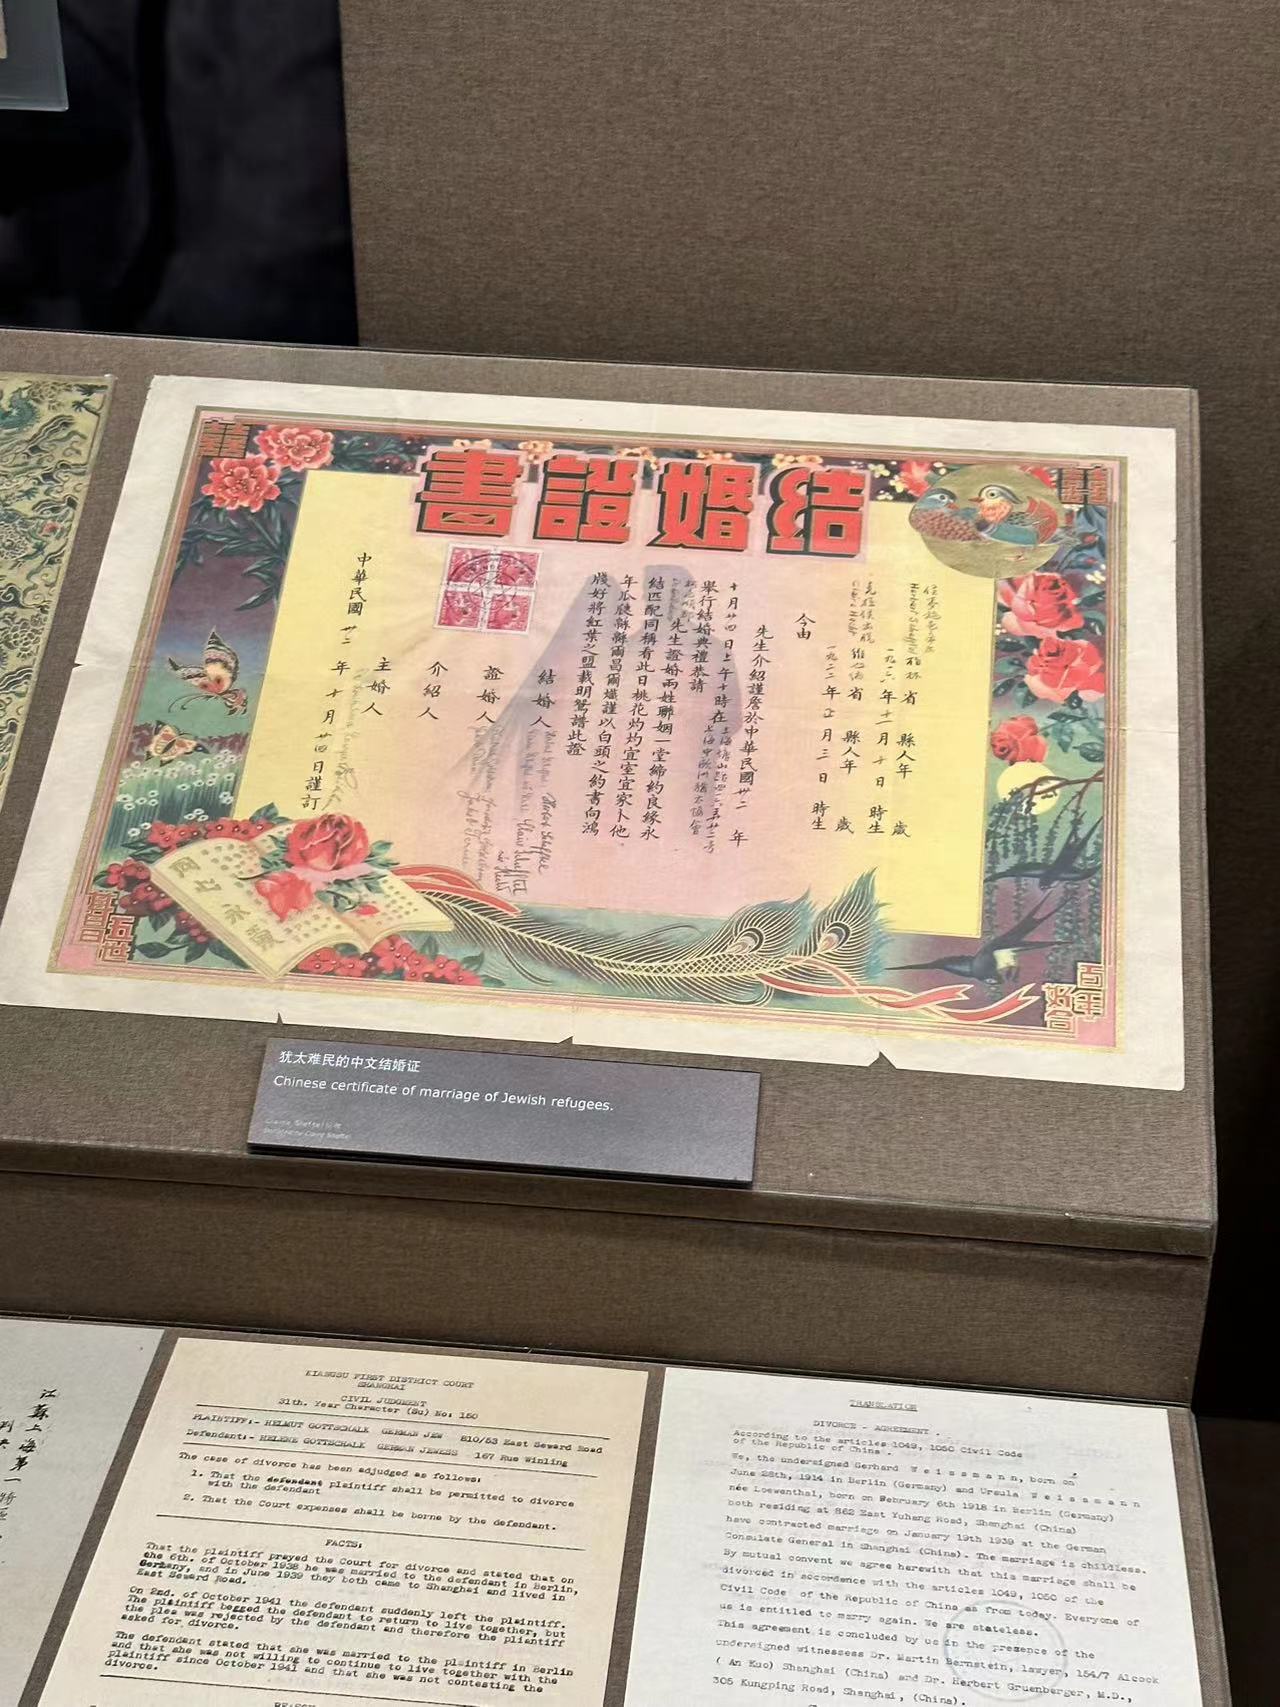 結婚證書
柏林 省 縣人年 歲
一九一六年十一月十日 時生
維也納 省 縣人年 歲
一九二二年正月三日 時生
今由
先生介紹謹詹於中華民國卅二年
十月廿四日上午十時在上海
舉行結婚典禮恭請
先生證婚兩姓聯姻一堂締約良緣永
結匹配同稱看此日桃花灼灼宜室宜家卜他
年瓜瓞緜緜爾昌爾熾謹以白頭之約書向鴻
牋好將紅葉之盟載明鴛譜此證
結婚人
證婚人
介紹人
主婚人
中華民國卅二年十月廿四日謹訂
五世
百年好合
犹太难民的中文结婚证
Chinese certificate of marriage of Jewish refugees.
江蘇上海第一特區
KIANGSU FIRST DISTRICT COURT
SHANGHAI
CIVIL JUDGMENT
31th. Year Character (Su) No: 150
PLAINTIFF:- HELMUT GOTTSCHALK GERMAN JEW 810/53 East Seward Road
Defendant:- HELENE GOTTSCHALK GERMAN JEWESS 167 Rue Winling
The case of divorce has been adjudged as follows:
1. That the defendant plaintiff shall be permitted to divorce
with the defendant
2. That the Court expenses shall be borne by the defendant.
FACTS:
That the plaintiff prayed the Court for divorce and stated that on
the 6th. of October 1938 he was married to the defendant in Berlin,
Germany, and in June 1939 they both came to Shanghai and lived in
East Seward Road.
On 2nd. of October 1941 the defendant suddenly left the plaintiff.
The plaintiff begged the defendant to return to live together, but
the plea was rejected by the defendant and therefore the plaintiff
asked for divorce.
The defendant stated that she was married to the plaintiff in Berlin
and that she was not willing to continue to live together with the
plaintiff since October 1941 and that she was not contesting the
divorce.
TRANSLATION
DIVORCE - AGREEMENT .
According to the articles 1049, 1050 Civil Code
of the Republic of China .
We, the undersigned Gerhard W e i s s m a n n, born on
June 28th, 1914 in Berlin (Germany) and Ursula W e i s s m a n n
née Loewenthal, born on February 6th 1918 in Berlin (Germany)
both residing at 862 East Yuhang Road, Shanghai (China)
have contracted marriage on January 19th 1939 at the German
Consulate General in Shanghai (China). The marriage is childless.
By mutual convent we agree herewith that this marriage shall be
divorced in accordance with the articles 1049, 1050 of the
Civil Code of the Republic of China as from today. Everyone of
us is entitled to marry again. We are stateless.
This agreement is concluded by us in the presence of the
undersigned witnessess Dr. Martin Bernstein, lawyer, 154/7 Alcock
( An Kuo) Shanghai (China) and Dr. Herbert Gruenberger, M.D.,
305 Kungping Road, Shanghai, (China).